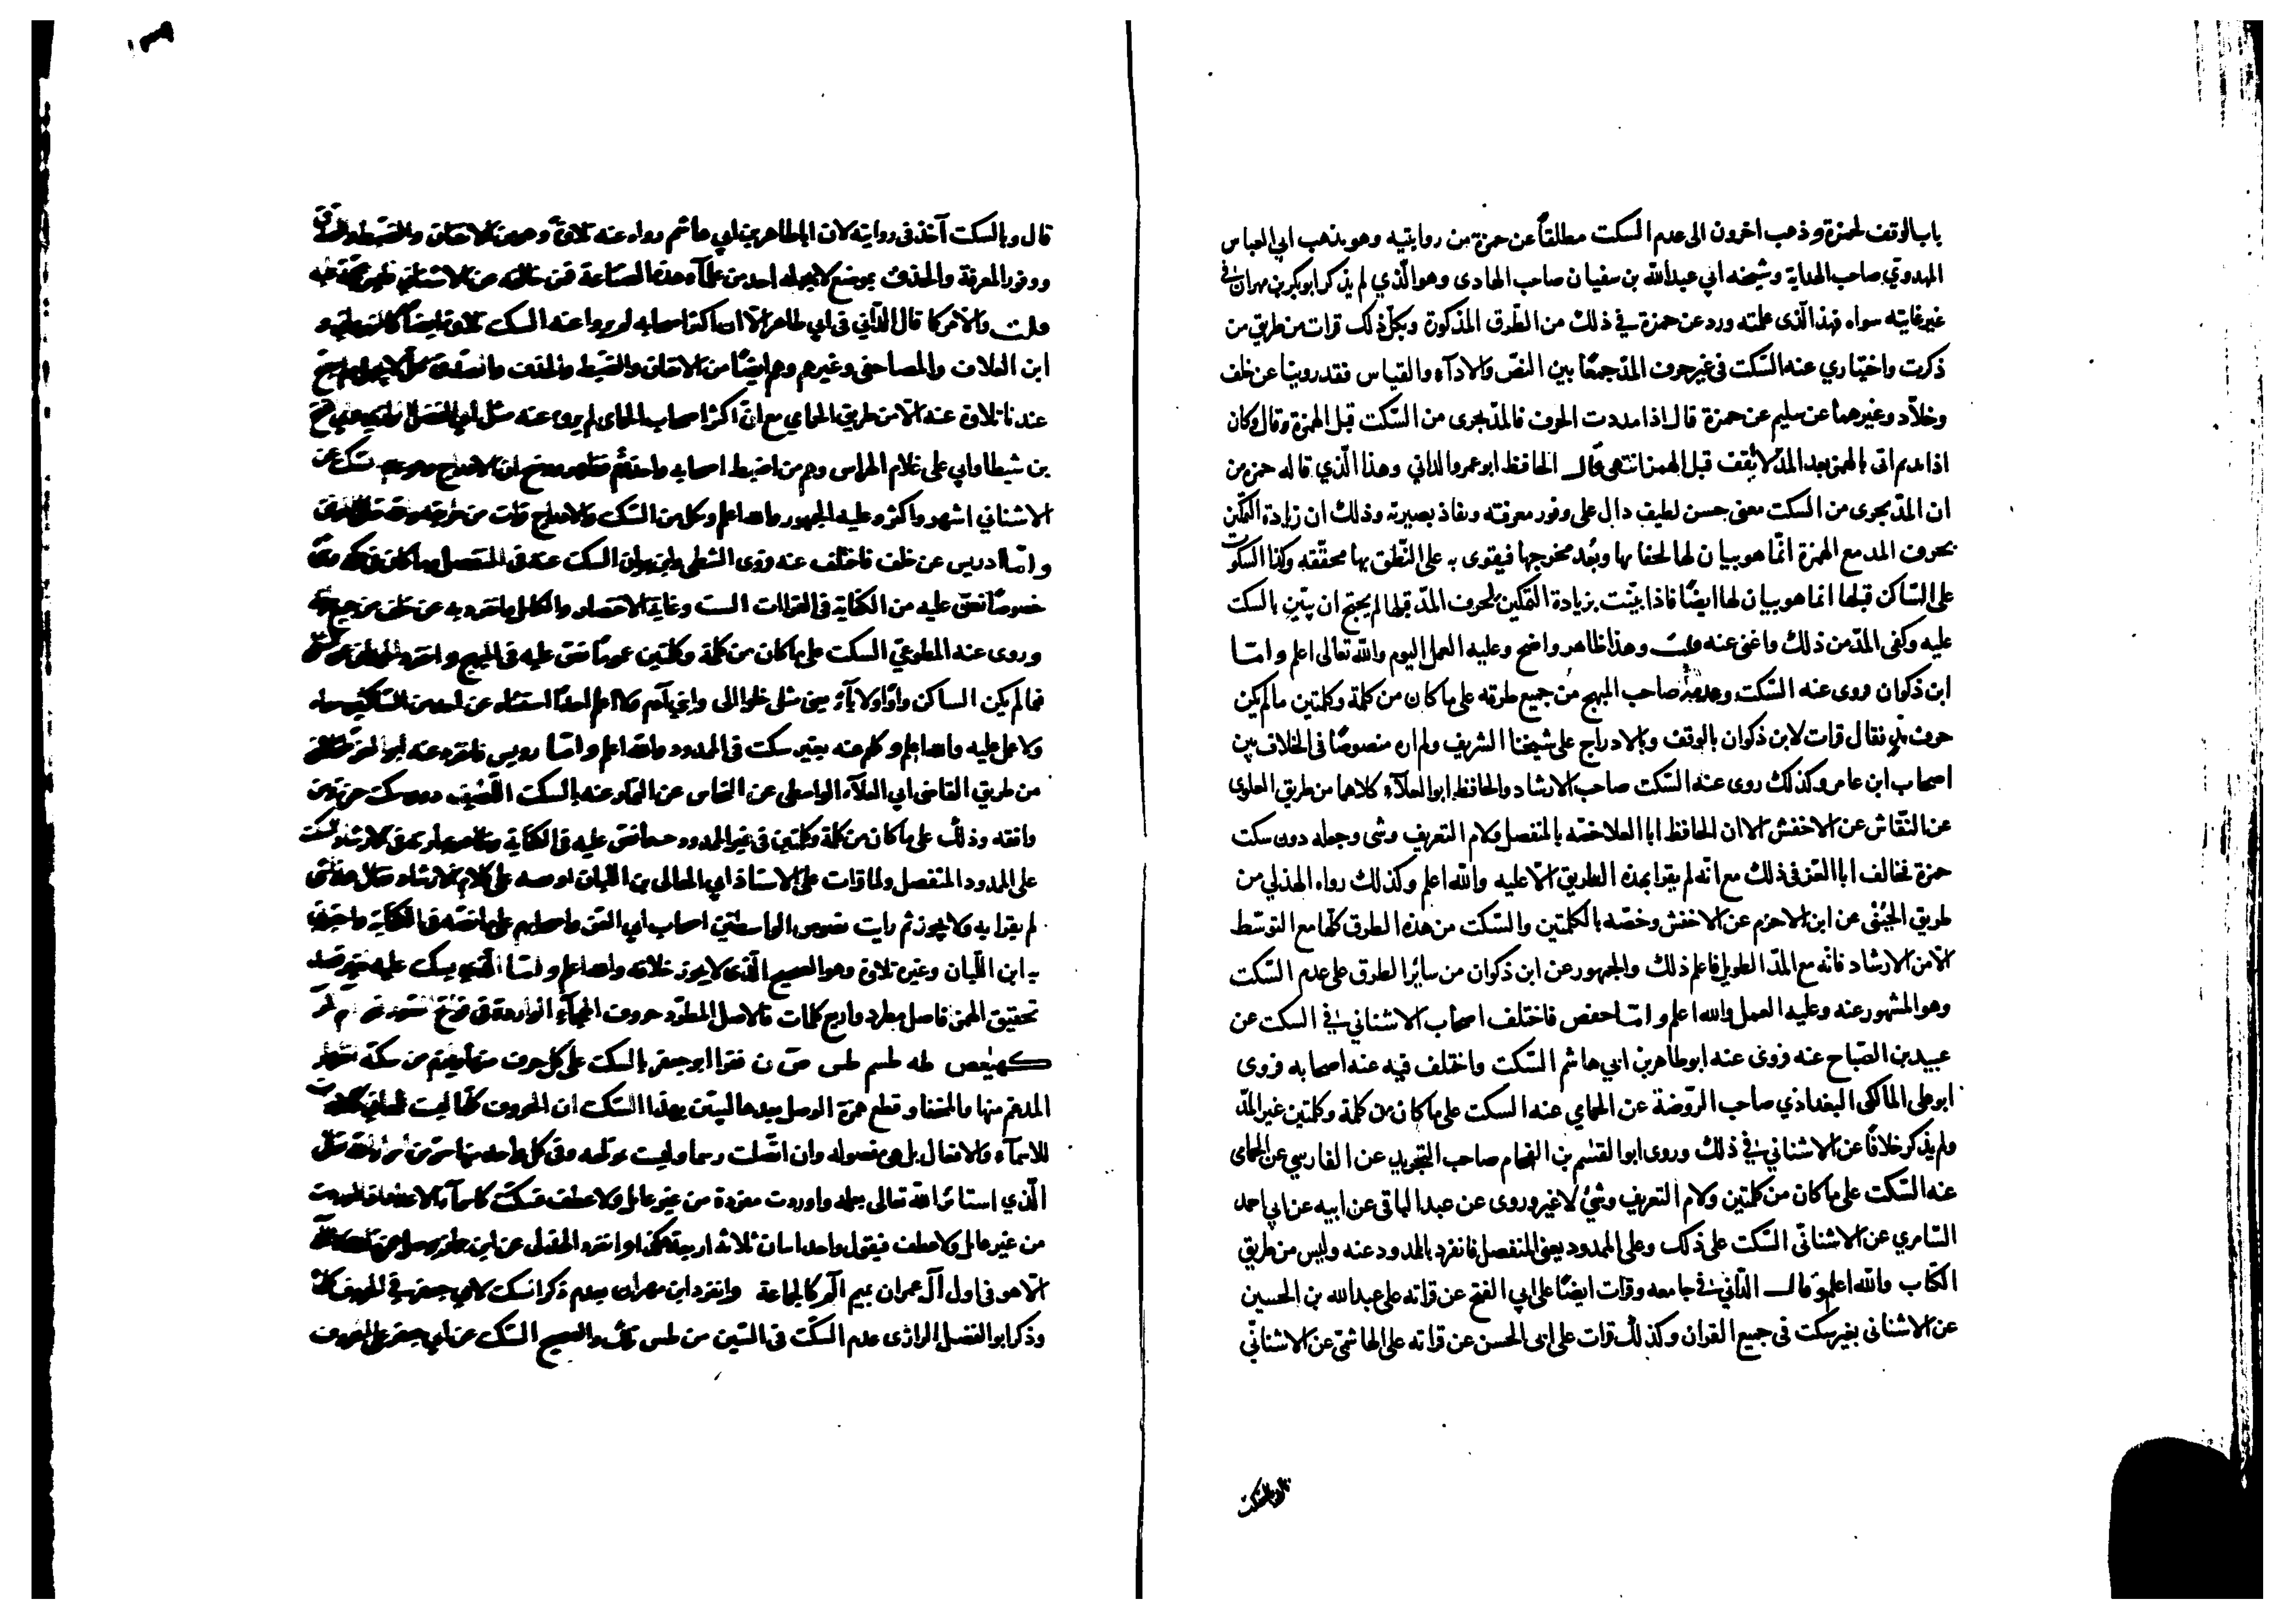 باب الوقف لحمزة وذهب اخرون الى عدم السكت مطلقاً عن حمزة من روايتيه وهو مذهب ابي العباس
المهدوي صاحب الهداية وشيخه ابي عبدالله بن سفيان صاحب الهادى وهو الّذي لم يذكر ابوبكر بن مهران في
غير غايته سواه فهذا الّذى علمته ورد عن حمزة في ذلك من الطّرق المذكورة وبكلّ ذلك قرات من طريق من
ذكرت واختياري عنه السّكت فى غير حروف المدّ جمعًا بين النصّ والادآء والقياس فقد روينا عن خلف
وخلّاد وغيرهما عن سليم عن حمزة قال اذا مددت الحرف فالمدّ يجرى من السّكت قبل الهمزة وقال وكان
اذا مدم اتى بالهمز بعد المدّ لا يقف قبل الهمز انتهى قال الحافظ ابو عمرو الداني وهذا الّذي قاله حمزه من
ان المدّ يجرى من السكت معنى حسن لطيف دال على وفور معرفته ونفاذ بصيرته وذلك ان زيادة التمكين
بحروف المد مع الهمزة انّما هو بيان لها لخفايها وبُعد مخرجها فيقوى به على النّطق بها محقّقه وكذا السكوت
على السّاكن قبلها انما هو بيان لها ايضًا فاذا بيّنت بزيادة التمكين لحرف المدّ قبلها لم يحتج ان يبيّن بالسكت
عليه وكفى المدّ من ذلك واغنى عنه قلت وهذا ظاهر واضح وعليه العمل اليوم والله تعالى اعلم وامّا
ابن ذكوان فروى عنه السّكت وعدمه صاحب المبهج من جميع طرقه على ما كان من كلمة وكلمتين ما لم يكن
حرف مد فقال قرات لابن ذكوان بالوقف وبالادراج على شيخنا الشريف ولم اره منصوصًا فى الخلاف بين
اصحاب ابن عامر وكذلك روى عنه السّكت صاحب الارشاد والحافظ ابو العلآء كلاهما من طريق العلوى
عن النقّاش عن الاخفش الا ان الحافظ ابا العلا خصّه بالمنفصل ولام التعريف وشى وجعله دون سكت
حمزة فخالف ابا العز فى ذلك مع انّه لم يقرا بهذه الطريق الّا عليه والله اعلم وكذلك رواه الهذلي من
طريق الجُبُنّى عن ابن الاخرم عن الاخفش وخصّه بالكلمتين والسّكت من هذه الطرق كلّها مع التوسّط
الّا من الارشاد فانّه مع المدّ الطويل فاعلم ذلك والجمهور عن ابن ذكوان من سائر الطرق على عدم السّكت
وهو المشهور عنه وعليه العمل والله اعلم وامّا حفص فاختلف اصحاب الاشناني في السكت عن
عبيد بن الصّباح عنه فروى عنه ابو طاهر بن ابي هاشم السّكت واختلف فيه عنه اصحابه فروى
ابو على المالكى البغداذي صاحب الرّوضة عن الحمامي عنه السكت على ما كان من كلمة وكلمتين غير المدّ
ولم يذكر خلافًا عن الاشناني في ذلك وروى ابو القسم بن الفحام صاحب التجريد عن الفارسي عن الحمامى
عنه السّكت على ما كان من كلمتين ولام التعريف وشئ لا غير وروى عن عبد الباقى عن ابيه عن ابي احمد
السّامري عن الاشنانّى السّكت على ذلك وعلى الممدود يعنى المنفصل فانفرد بالممدود عنه وليس من طريق
الكتاب والله اعلم وقال الدّاني في جامعه وقرات ايضًا على ابي الفتح عن قراته على عبدالله بن الحسين
عن الاشنانى بغير سكت فى جميع القران وكذلك قرات على ابى الحسن عن قراته على الهاشمى عن الاشنانّي
قال وبالسكت
قال وبالسكت آخذ فى روايته لان ابا طاهر بن ابي هاشم رواه عنه تلاوةً وهو من الاتقان والضبط والصدق
ووفور المعرفة والحذق بموضع لا يجهله احد من علمآء هذه الصّناعة فمن خالفه عن الاشناني فليس بحجة عليه
قلت والامر كما قال الدّاني فى ابي طاهر الّا ان اكثر اصحابه لم يرووا عنه السكت تلاوة ايضًا كالنهرواني و
ابن العلاف والمصاحفى وغيرهم وهم ايضًا من الاتقان والضبط والحذق
عندنا تلاوة عنه الّا من طريق الحمامي مع انّ اكثر اصحاب الحمامى لم يرو عنه مثل ابي الفضل
بن شيطا وابي على غلام الهراس وهم من اضبط اصحابه واحذقهم
الاشناني اشهر واكثر وعليه الجمهور والله اعلم وبكل من السّكت والادراج قرات من طريقه
وامّا ادريس عن خلف فاختلف عنه فروى الشطى وابن بويان السكت عنه فى المنفصل وما كان فى حكمه
خصوصًا نصّ عليه من الكفاية فى القراات الست وغاية الاختصار والكامل وانفرد به عن خلف من جميع
وروى عنه المطوعيّ السكت على ما كان من كلمة وكلمتين عمومًا نصّ عليه فى المبهج وانفرد
فما لم يكن الساكن واوًا ولا يآءً يعنى مثل خلوا الى وابني آدم ولا اعلم احدًا استثناه عن احد من السّاكتين سواه
ولا عمل عليه والله اعلم وكلهم عنه بغير سكت فى الممدود والله اعلم وامّا رويس فانفرد عنه ابو العز
من طريق القاضى ابي العلآء الواسطى عن النخاس عن التمّار عنه بالسكت اللّطيف دون سكت حمزة ومن
وافقه وذلك على ما كان من كلمة وكلمتين فى غير الممدود حسبما نصّ عليه فى الكفاية
على الممدود المنفصل ولما قرات على الاستاذ ابي المعالى بن اللّبان اوقفته على كلام الارشاد فقال هذا شى
لم يقرا به ولا يجوز ثم رايت نصوص الواسطيّين اصحاب ابي العز واصحابهم على ما نصّه فى الكفاية واخبرنى
به ابن اللّبان وغيره تلاوة وهو الصحيح الّذى لا يجوز خلافه والله اعلم وامّا الّذي يسكت عليه لغير قصد
تحقيق الهمز فاصل مطرد واربع كلمات فالاصل المطّرد حروف الهجآء الواردة فى فواتح السور نحو آلم آلر
كهيعص طه طسم طس ص ن فقرا ابو جعفر بالسكت على كل حرف منها ويلزم من سكته اظهار
المدغم منها والمخفا وقطع همزة الوصل بعدها ليبيّن بهذا السّكت ان الحروف كلّها ليست للمعاني
للاسمآء والافعال بل هى مفصوله وان اتّصلت رسما وليست بمؤتلفه وفى كل واحد منها سرّ من اسرار الله تعالى
الّذي استاثر الله تعالى بعلمه واوردت مفردة من غير عامل ولا عطف فسكّنت كاسمآء الاعداد اذا وردت
من غير عامل ولا عطف فيقول واحد اثنان ثلاثه اربعة هكذا وانفرد الهذلى عن ابن جماز
الّا هو فى اول آل عمران بميم الم كالجماعة وانفرد ابن مهران بعدم ذكر السّكت لابي جعفر في الحروف كلّها
وذكر ابو الفضل الرازى عدم السكّت فى السّين من طس تلك والصحيح السّكت عن ابي جعفر على الحروف